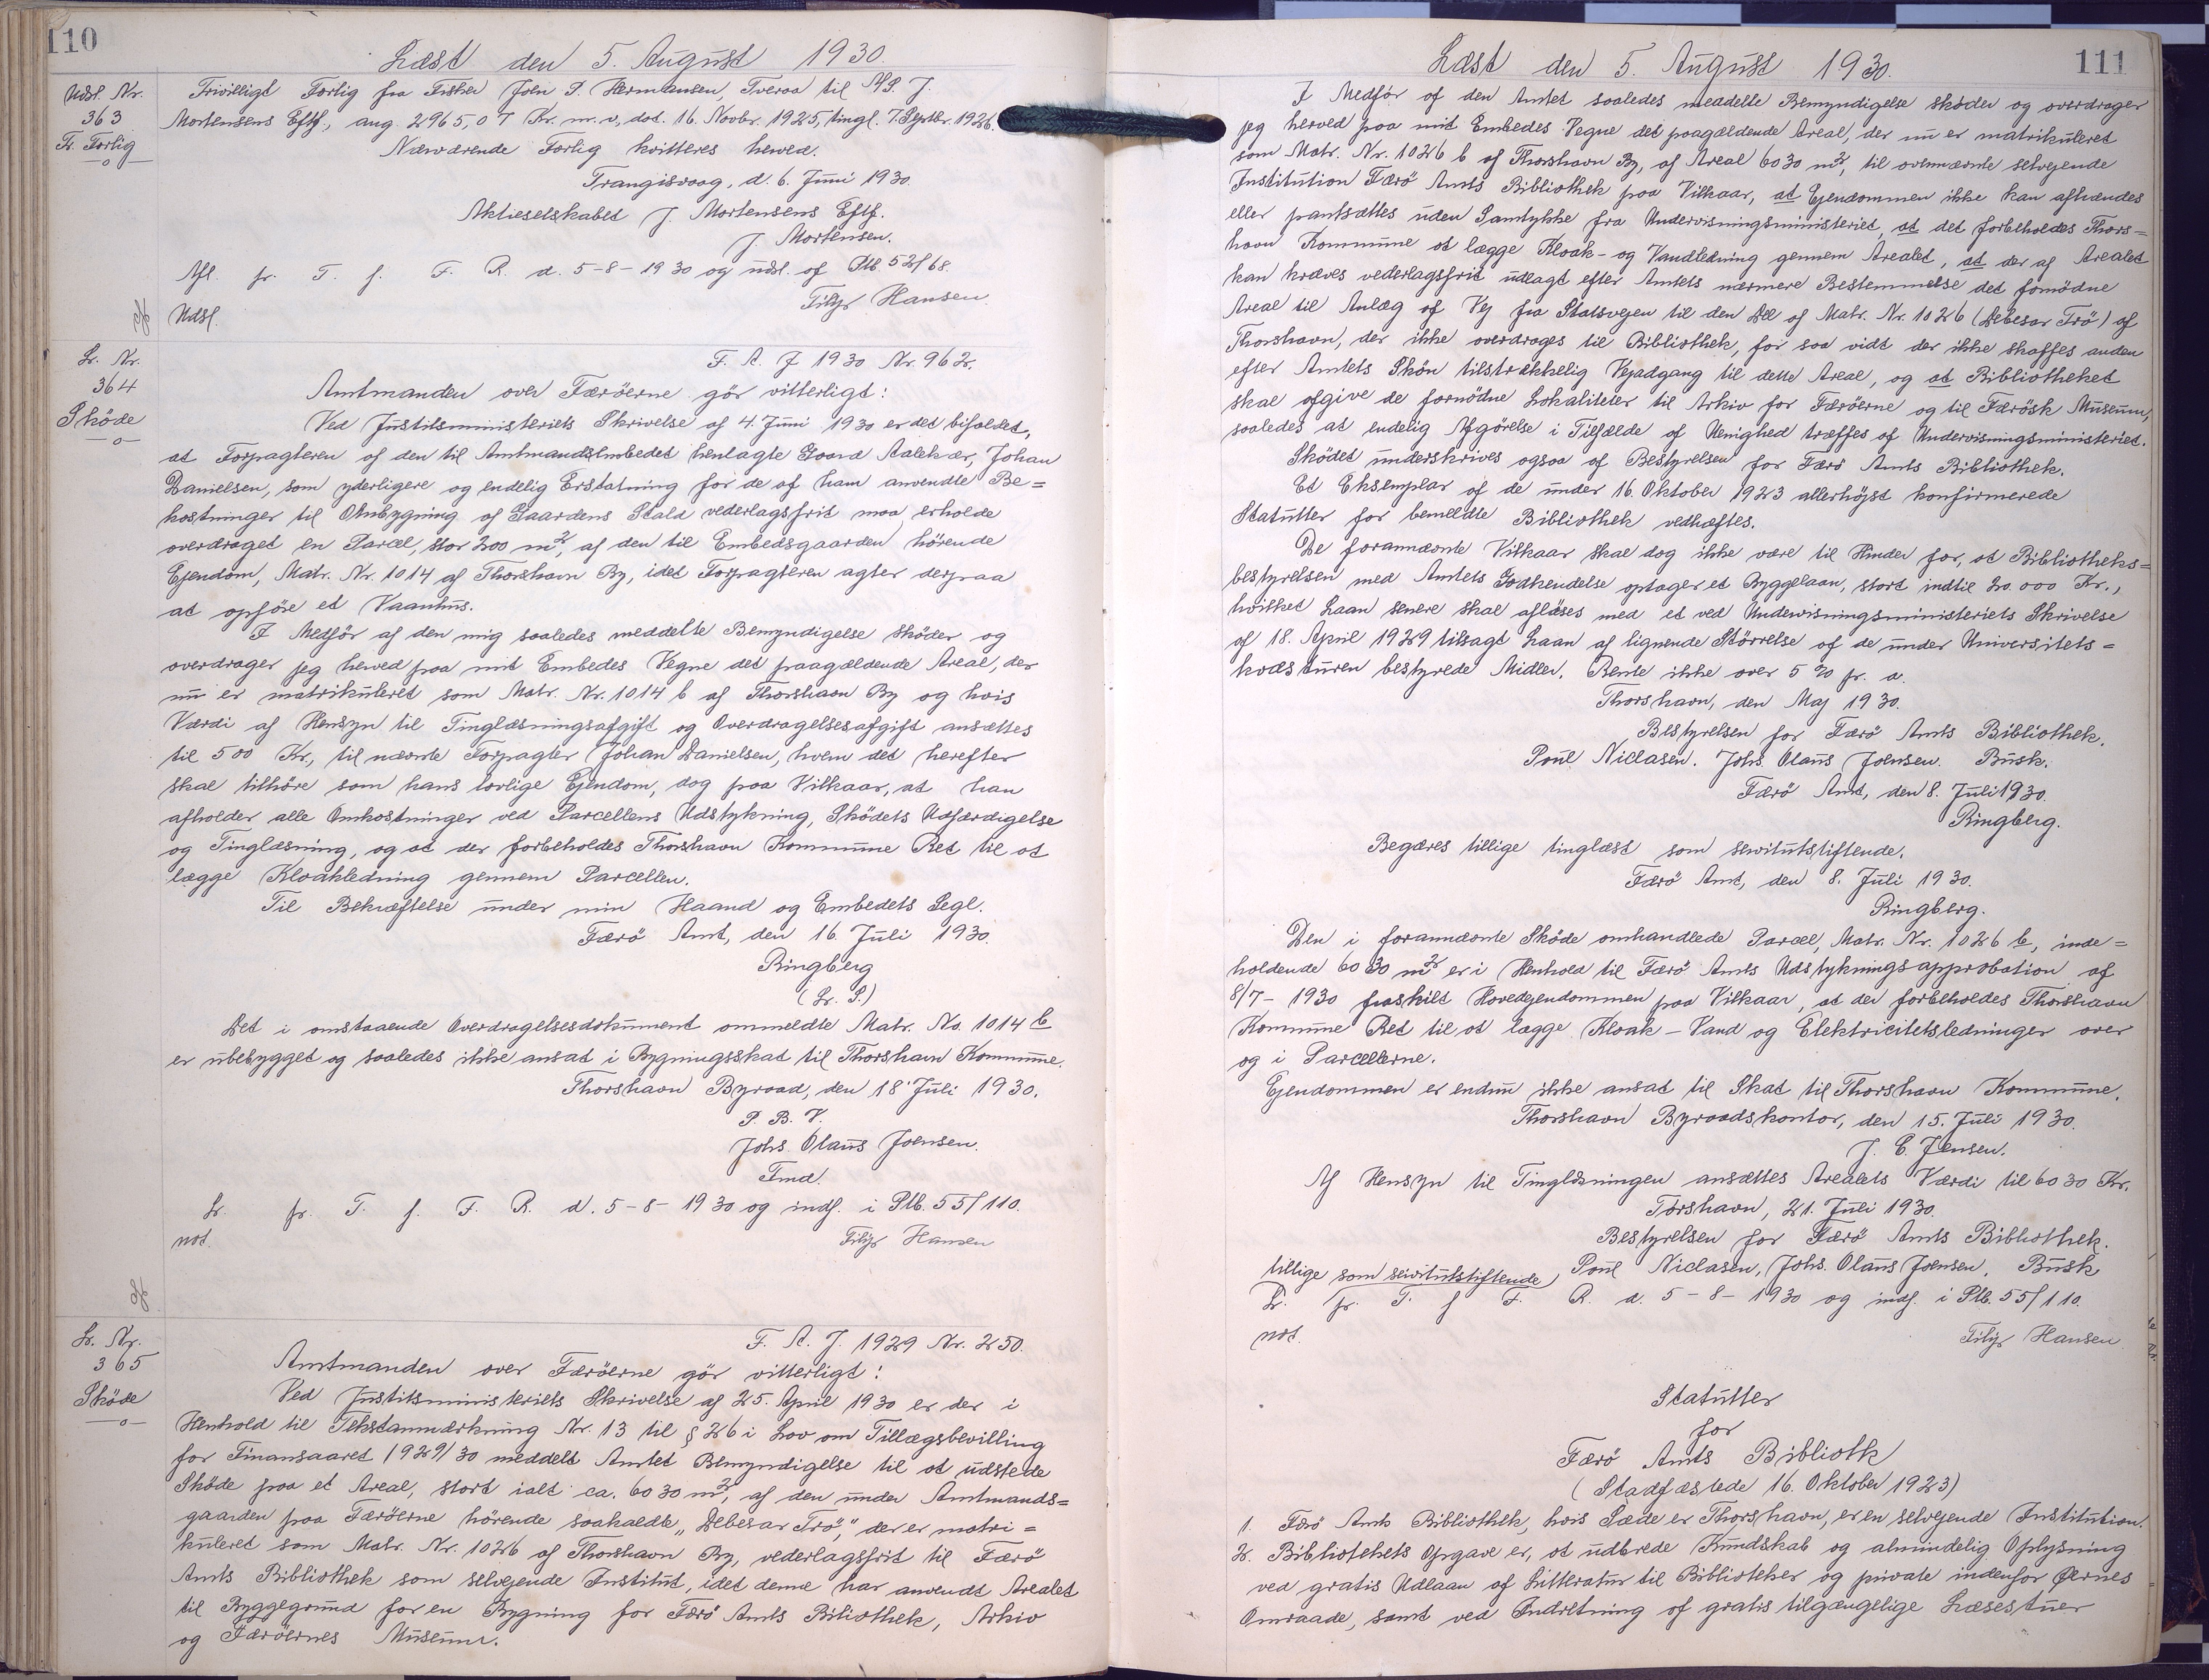 110
Læst den 5. August 1930.
Udsl. Nr.
363
Fr. Forlig
Frivilligt Forlig fra Fisker Joen P. Hermansen, Tveraa til A/S. J.
Mortensens Eftf., ang. 2965,07 Kr. m. v., dat. 16. Novbr. 1925, tingl. 7. Septbr. 1926.
Nærværende Forlig kvitteres herved.
Trangisvaag, d. 6. Juni 1930.
Aktieselskabet J. Mortensens Eftf.
J. Mortensen.
Afl. fr. T. f. F. R. d. 5-8-1930 og udsl. af Ptb. 52/68.
Filip Hansen.
Udsl.
Lr. Nr.
364
Sköde
F. A. J 1930 Nr. 962.
Amtmanden over Færöerne gör vitterligt:
Ved Justitsministeriets Skrivelse af 4. Juni 1930 er det bifaldet,
at Forpagteren af den til Amtmandsembedet henlagte Gaard Aalekær, Johan
Danielsen, som yderligere og endelig Erstatning for de af ham anvendte Be=
kostninger til Ombygning af Gaardens Stald vederlagsfrit maa erholde
overdraget en Parcel, stor 200 m², af den til Embedsgaarden hörende
Ejendom, Matr. Nr. 1014 af Thorshavn By, idet Forpagteren agter derpaa
at opföre et Vaanhus.
I Medför af den mig saaledes meddelte Bemyndigelse sköder og
overdrager jeg herved paa mit Embedes Vegne det paagældende Areal, der
nu er matrikuleret som Matr. Nr. 1014 b af Thorshavn By og hvis
Værdi af Hensyn til Tinglæsningsafgift og Overdragelsesafgift ansættes
til 500 Kr, til nævnte Forpagter Johan Danielsen, hvem det herefter
skal tilhöre som hans lovlige Ejendom, dog paa Vilkaar, at han
afholder alle Omkostninger ved Parcellens Udstykning, Sködets Udfærdigelse
og Tinglæsning, og at der forbeholdes Thorshavn Kommune Ret til at
lægge Kloakledning gennem Parcellen.
Til Bekræftelse under min Haand og Embedets Segl.
Færö Amt, den 16. Juli 1930.
Ringberg
(L. S.)
Det i omstaaende Overdragelsesdokument ommeldte Matr. No. 1014 b
er ubebygget og saaledes ikke ansat i Bygningsskat til Thorshavn Kommune.
Thorshavn Byraad, den 18 Juli 1930.
P. B. V.
Johs. Olaus Joensen.
Fmd.
Lr. fr. T. f. F. R. d. 5-8-1930 og indf. i Ptb. 55/110.
not.
Filip Hansen
Lr. Nr.
365
Sköde
F. A. J. 1929 Nr. 250.
Amtmanden over Færöerne gör vitterligt:
Ved Justitsministeriets Skrivelse af 25. April 1930 er der i
Henhold til Tekstanmærkning Nr. 13 til § 26 i Lov om Tillægsbevilling
for Finansaaret 1929/30 meddelt Amtet Bemyndigelse til at udstede
Sköde paa et Areal, stort ialt ca. 6030 m², af den under Amtmands=
gaarden paa Færöerne hörende saakaldte „Debesar Trö," der er matri=
kuleret som Matr. Nr. 1026 af Thorshavn By, vederlagsfrit til Færö
Amts Bibliothek som selvejende Institut, idet denne har anvendt Arealet
til Byggegrund for en Bygning for Færö Amts Bibliothek, Arkiv
og Færöernes Museum.
111
Læst den 5. August 1930.
I Medför af den Amtet saaledes meddelte Bemyndigelse sköder og overdrager
jeg herved paa mit Embedes Vegne det paagældende Areal, der nu er matrikuleret
som Matr. Nr. 1026 b af Thorshavn By, af Areal 6030 m², til ovennævnte selvejende
Institution Færö Amts Bibliothek paa Vilkaar, at Ejendommen ikke kan afhændes
eller pantsættes uden Samtykke fra Undervisningsministeriet, at det forbeholdes Thors=
havn Kommune at lægge Kloak- og Vandledning gennem Arealet, at der af Arealet
kan kræves vederlagsfrit udlagt efter Amtets nærmere Bestemmelse det fornödne
Areal til Anlæg af Vej fra Statsvejen til den Del af Matr. Nr. 1026 (Debesar Trö) af
Thorshavn, der ikke overdrages til Bibliothek, for saa vidt der ikke skaffes anden
efter Amtets Skön tilstrækkelig Vejadgang til dette Areal, og at Bibliotheket
skal afgive de fornödne Lokaliteter til Arkiv for Færöerne og til Færösk Museum,
saaledes at endelig Afgörelse i Tilfælde af Uenighed træffes af Undervisningsministeriet.
Sködet underskrives ogsaa af Bestyrelsen for Færö Amts Bibliothek.
Et Eksemplar af de under 16. Oktober 1923 allerhöjst konfirmerede
Statutter for bemeldte Bibliothek vedhæftes.
De forannævnte Vilkaar skal dog ikke være til Hinder for, at Bibliotheks=
bestyrelsen med Amtets Godkendelse optager et Byggelaan, stort indtil 20.000 Kr.,
hvilket Laan senere skal aflöses med et ved Undervisningsministeriets Skrivelse
af 18. April 1929 tilsagt Laan af lignende Störrelse af de under Universitets=
kvæsturen bestyrede Midler. Rente ikke over 5 % pr. a.
Thorshavn, den Maj 1930.
Bestyrelsen for Færö Amts Bibliothek.
Poul Niclasen. Johs Olaus Joensen. Busk.
Færö Amt, den 8. Juli 1930.
Ringberg.
Begæres tillige tinglæst som servitutstiftende.
Færö Amt, den 8. Juli 1930.
Ringberg.
Den i forannævnte Sköde omhandlede Parcel, Matr. Nr. 1026 b, inde=
holdende 6030 m² er i Henhold til Færö Amts Udstykningsapprobation af
8/7- 1930 fraskilt Hovedejendommen paa Vilkaar, at der forbeholdes Thorshavn
Kommune Ret til at lægge Kloak - Vand og Elektricitetsledninger over
og i Parcellerne.
Ejendommen er endnu ikke ansat til Skat til Thorshavn Kommune.
Thorshavn Byraadskontor, den 15. Juli 1930.
J. C. Jensen.
Af Hensyn til Tinglæsningen ansættes Arealets Værdi til 6030 Kr.
Torshavn, 21. Juli 1930.
Bestyrelsen for Færö Amts Bibliothek.
Poul Niclasen, Johs. Olaus Joensen. Busk
tillige som servitutstiftende
Lr. fr. T. f F. R. d. 5-8-1930 og indf. i Ptb. 55/110.
not.
Filip Hansen
Statutter
for
Færö Amts Bibliothk
(Stadfæstede 16. Oktober 1923)
1. Færö Amts Bibliothek, hvis Sæde er Thorshavn, er en selvejende Institution.
2. Bibliotekets Opgave er, at udbrede Kundskab og almindelig Oplysning
ved gratis Udlaan af Litteratur til Biblioteker og private indenfor Øernes
Omraade, samt ved Indretning af gratis tilgængelige Læsestuer